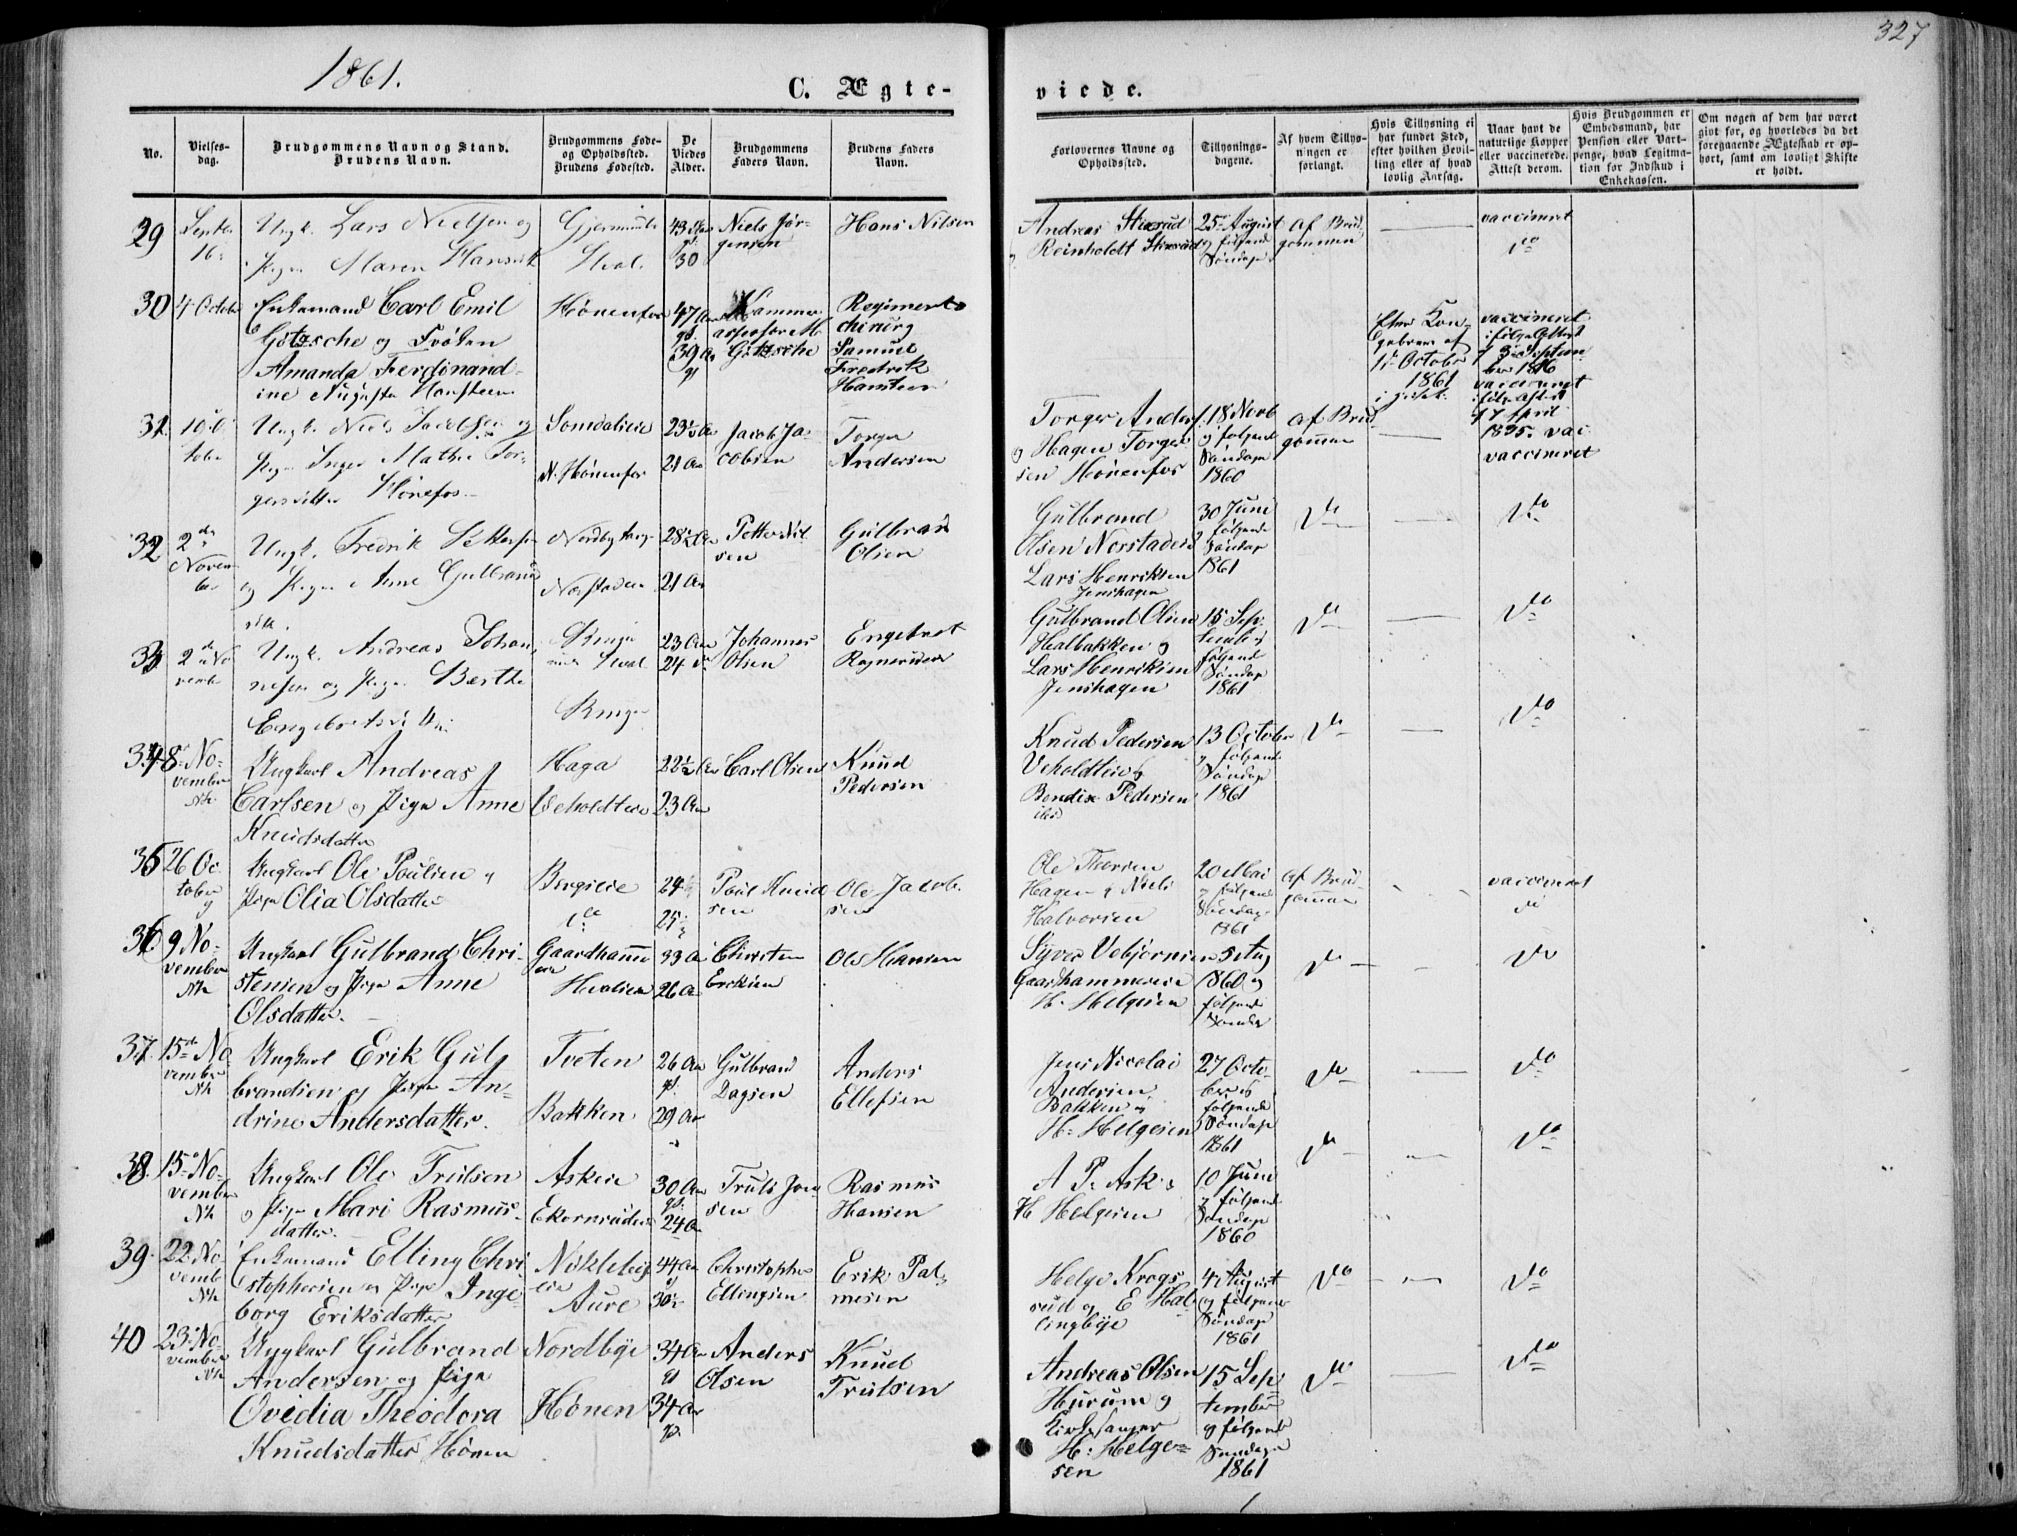 1861.
327
C. Ægte-
viede.
No.
Vielses-
dag.
Brudgommens Navn og Stand.
Brudens Navn.
Brudgommens Føde-
og Opholdssted.
Brudens Fødested.
De
Viedes
Alder.
Brudgommens
Faders Navn.
Brudens Faders
Navn.
Forlovernes Navne og
Opholdssted.
Tillysnings-
dagene.
Af hvem Tillys-
ningen er
forlangt.
Hvis Tillysning ei
har fundet Sted,
efter hvilken Bevil-
ling eller af hvad
lovlig Aarsag.
Naar havt de
naturlige Kopper
eller vaccinerede.
Attest derom.
Hvis Brudgommen er
Embedsmand, har
Pension eller Vart-
penge, hvad Legitima-
tion for Indskud i
Enkekassen.
Om nogen af dem har været
givt for, og hvorledes da det
foregaaende Ægteskab er op-
hørt, samt om lovligt Skifte
er holdt.
29
16
Ungk. Lars Nielsen og
Pige Maren Hansd
43
30
Niels Jør-
gensen
Hans Nilsen
Andreas
Reinholdt
25 August
og følgend
Søndage
af Brud
gommen
vaccineret
do
30
4 October
Enkemand Carl Emil
Götzsche og Frøken
Amanda Ferdinand-
ine Augusta Hansteen
Hønenfos
47 Aar
39 Aar
Kammer-
assessor M
Götzsche
Regiments
chirurg
Samuel
Fredrik
Hansteen
af
1 October
1861
vaccineret
ifølge Attest
3 Septem
ber 1816
vaccineret
ifølge Attest
17 April
1835. vac
vaccineret
31
10 O
tober
Ungk. Niels og
Pige Inger Mathea Tor-
gersdatter Hønefos
N. Hønenfos
23½ Aar
21 Aar
Jacob Ja-
cobsen
Torger
Andersen
Torger Anders
og Hagen Torger
sen Hønenfos
18
og følgende
Søndage
1860
af Brud
gommen
32
2
Novem
ber
Ungk. Fredrik Pettersen
og Pige Anne Gulbrands
28½ Aar
21 Aar
Petter Nil
sen
Gulbrand
Olsen
Gulbrand
Olsen Norstadeie
Lars Henriksen
Jenshagen
30 Juni
følgende
Søndage
1861
do
do
33
2 No
vembr
Ungk. Andreas Johan
nesen og Pige Berthe
Engebretsdatter
23 Aar
24 do
Johannes
Olsen
Engebret
Gulbrand Olsen
Halbakken og
Lars Henriksen
Jenshagen
15 Sep
tember
følgende
Søndage
1861
do
do
34
8 No-
vember
Ungkarl Andreas
Carlsen og Pige Anne
Knudsdatter
Haga
Veholdteie
22½ Aar
23 Aar
Carl Olsen
Knud
Pedersen
Knud Pedersen
Veholdteie og
Bendix Pedersen
ibid
13 October
og følgende
Søndage
1861
do
do
35
26 Oc
tober
Ungkarl Ole Poulsen
Pige Olia Olsdatter
do
24½
25½
Poul Knud
sen
Ole Jacob-
sen
Ole
Hagen & Niels
Halvorsen
20 Mai
og følgende
Søndage
1861
af Brud-
gommen
vaccineret
do
36
9 No-
vember
Ungkarl Gulbrand Chri-
stensen og Pige Anne
Olsdatter
Gaardhamme
eie
33 A
26 A
Christen
Eriksen
Ole Hansen
Syver Vebjørnsen
Gaardhammereie
H. Helgesen
5 Aug
1860 og
følgende
Søndag
do
do
37
15 No
vember
Ungkarl Erik Gul
brandsen og Pige An-
drine Andersdatter.
Tveten
Bakken
26 Aar
29 Aar
Gulbrand
Dagsen
Anders
Ellefsen
Jens Nicolai
Andersen
Bakken og
H. Helgesen
27 Octo-
ber og
følgende
Søndage
1861
do
do
38
15 No-
vember
Ungkarl Ole Trulsen
og Pige Mari Rasmus-
datter
Askeie
30 Aar
24 Aar
Truls Jon
sen
Rasmus
Hansen
A P. Ask
H Helgesen
10 Juni
følgende
Søndage
1860
do
do
39
22 No
vemb
Enkemand Elling Chri
stophersen og Pige Inge-
borg Eriksdatter
Aure
44 Aar
30½
Christopher
Ellingsen
Erik Pal-
mesen
Helge Krags
rud og E Hal
lingbye
4 August
og følgende
Søndage
1861
do
do
40
23 No
vember
Ungkarl Gulbrand
Andersen og Pige
Ovidia Theodora
Knudsdatter Hønen
Nordbye
Hønen
34 Aar
34 Aar
Anders
Olsen
Knud
Trulsen
Andreas Olsen
Hurum og
Kirkesanger
H. Helge-
sen
15 Sep
tember
og følgende
Søndage
1861
do
do